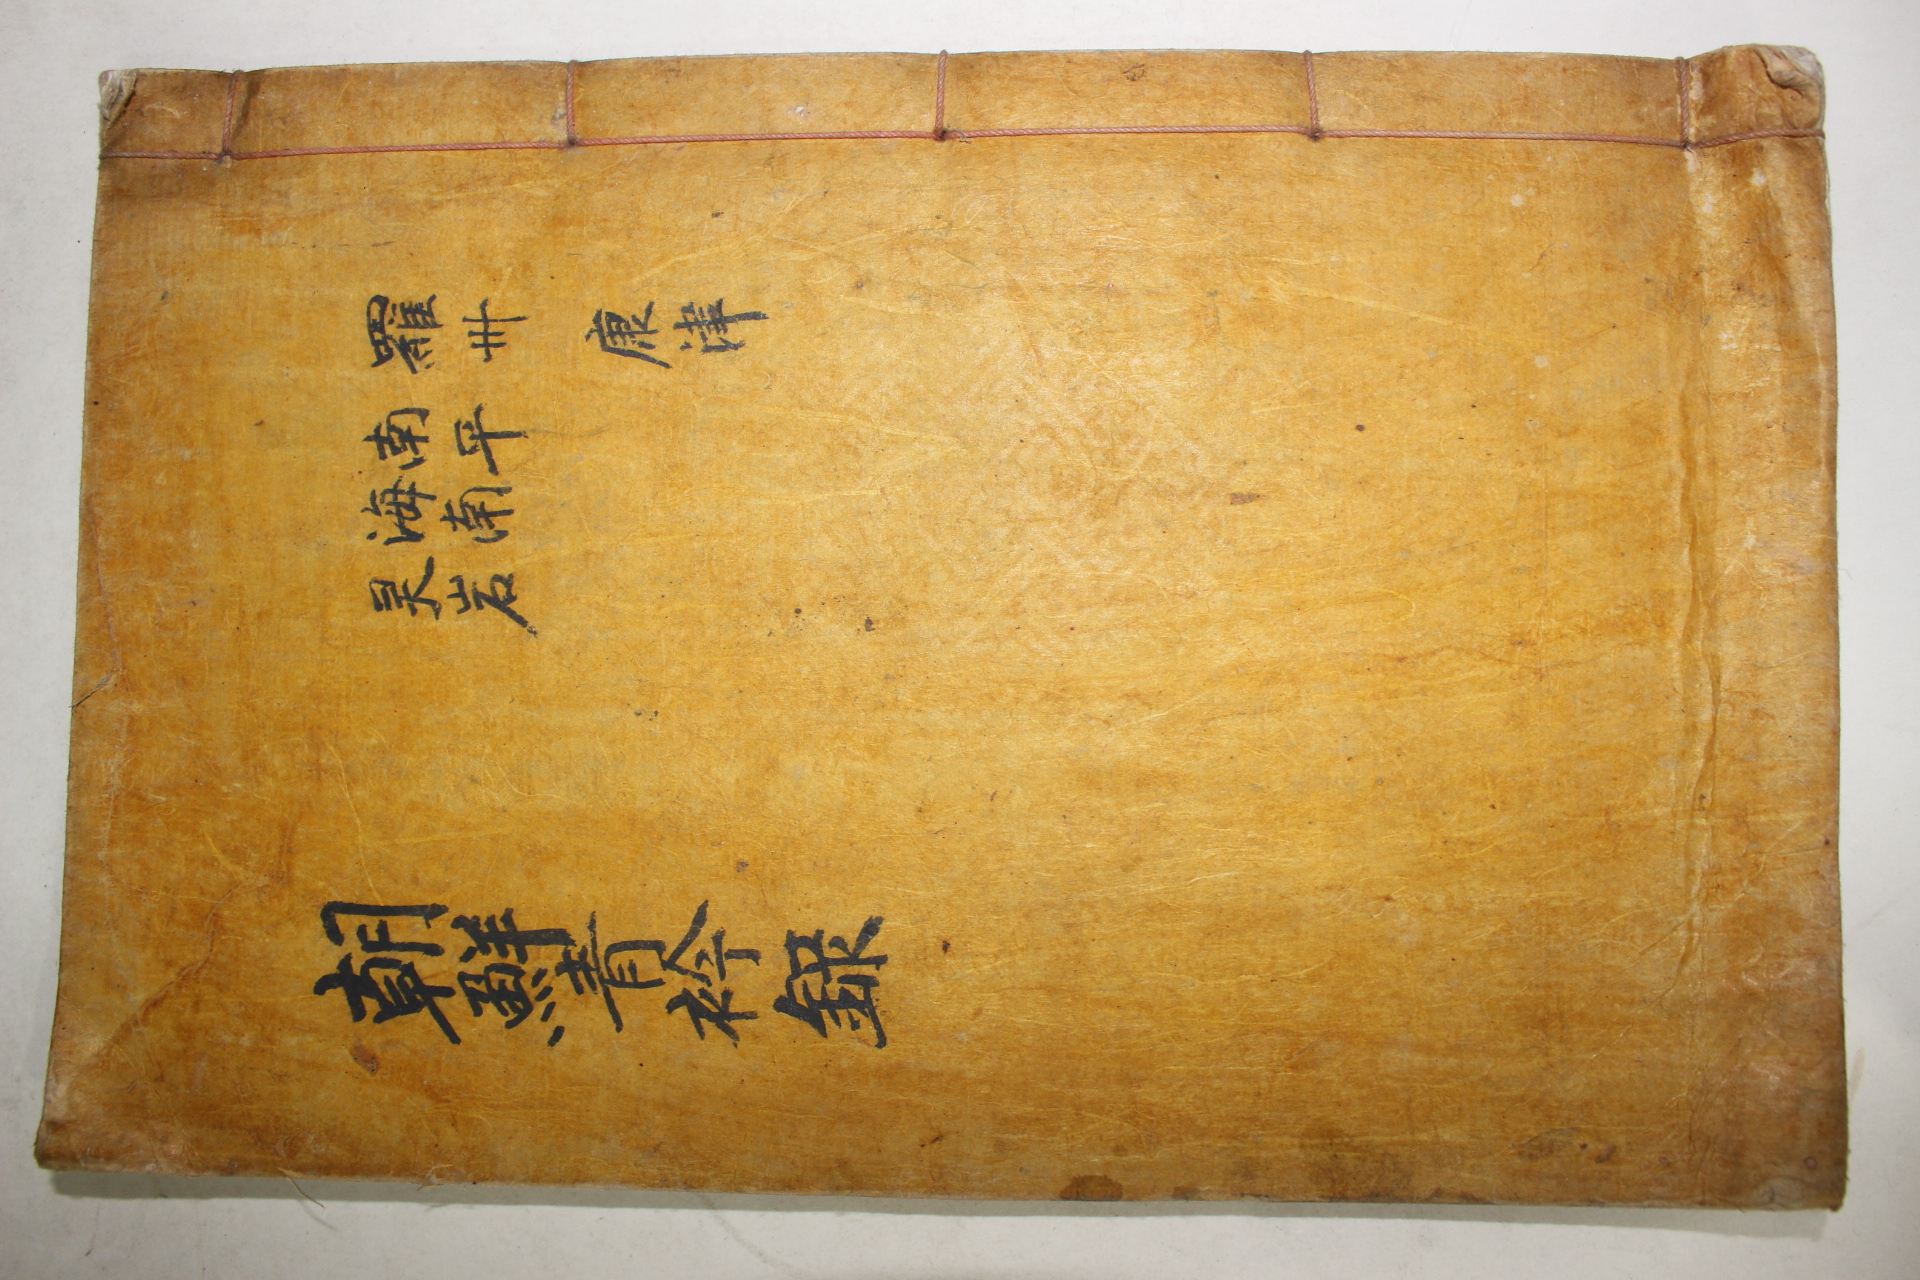 羅卅 康津
南平
海南
灵岩
朝鮮青衿録